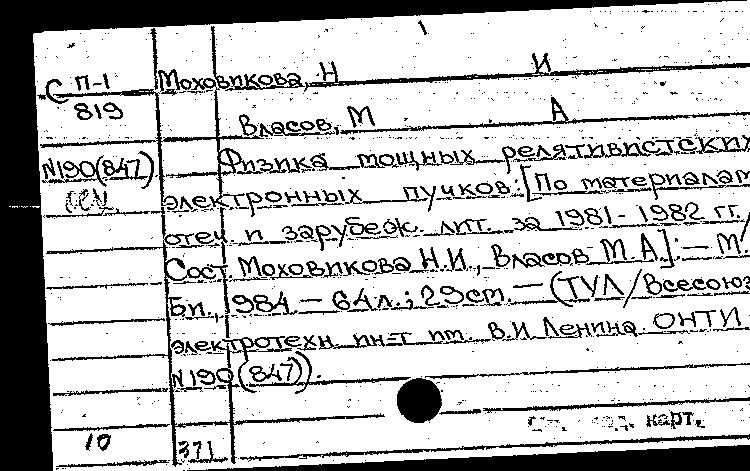 С П-1 Моховикова, Н И
819
Власов, М А
N190(847) Физика мощных релятивистских
электронных пучков: [По материалам
отеч. и зарубеж. лит. за 1981-1982 гг. /
Сост. Моховикова Н.И., Власов М.А.]. - М.
Би., 1984. - 64л.; 29см. - (ТУЛ/Всесоюз
электротехн ин-т им. В.И Ленина ОНТИ
N190(847)).
карт.
10 371